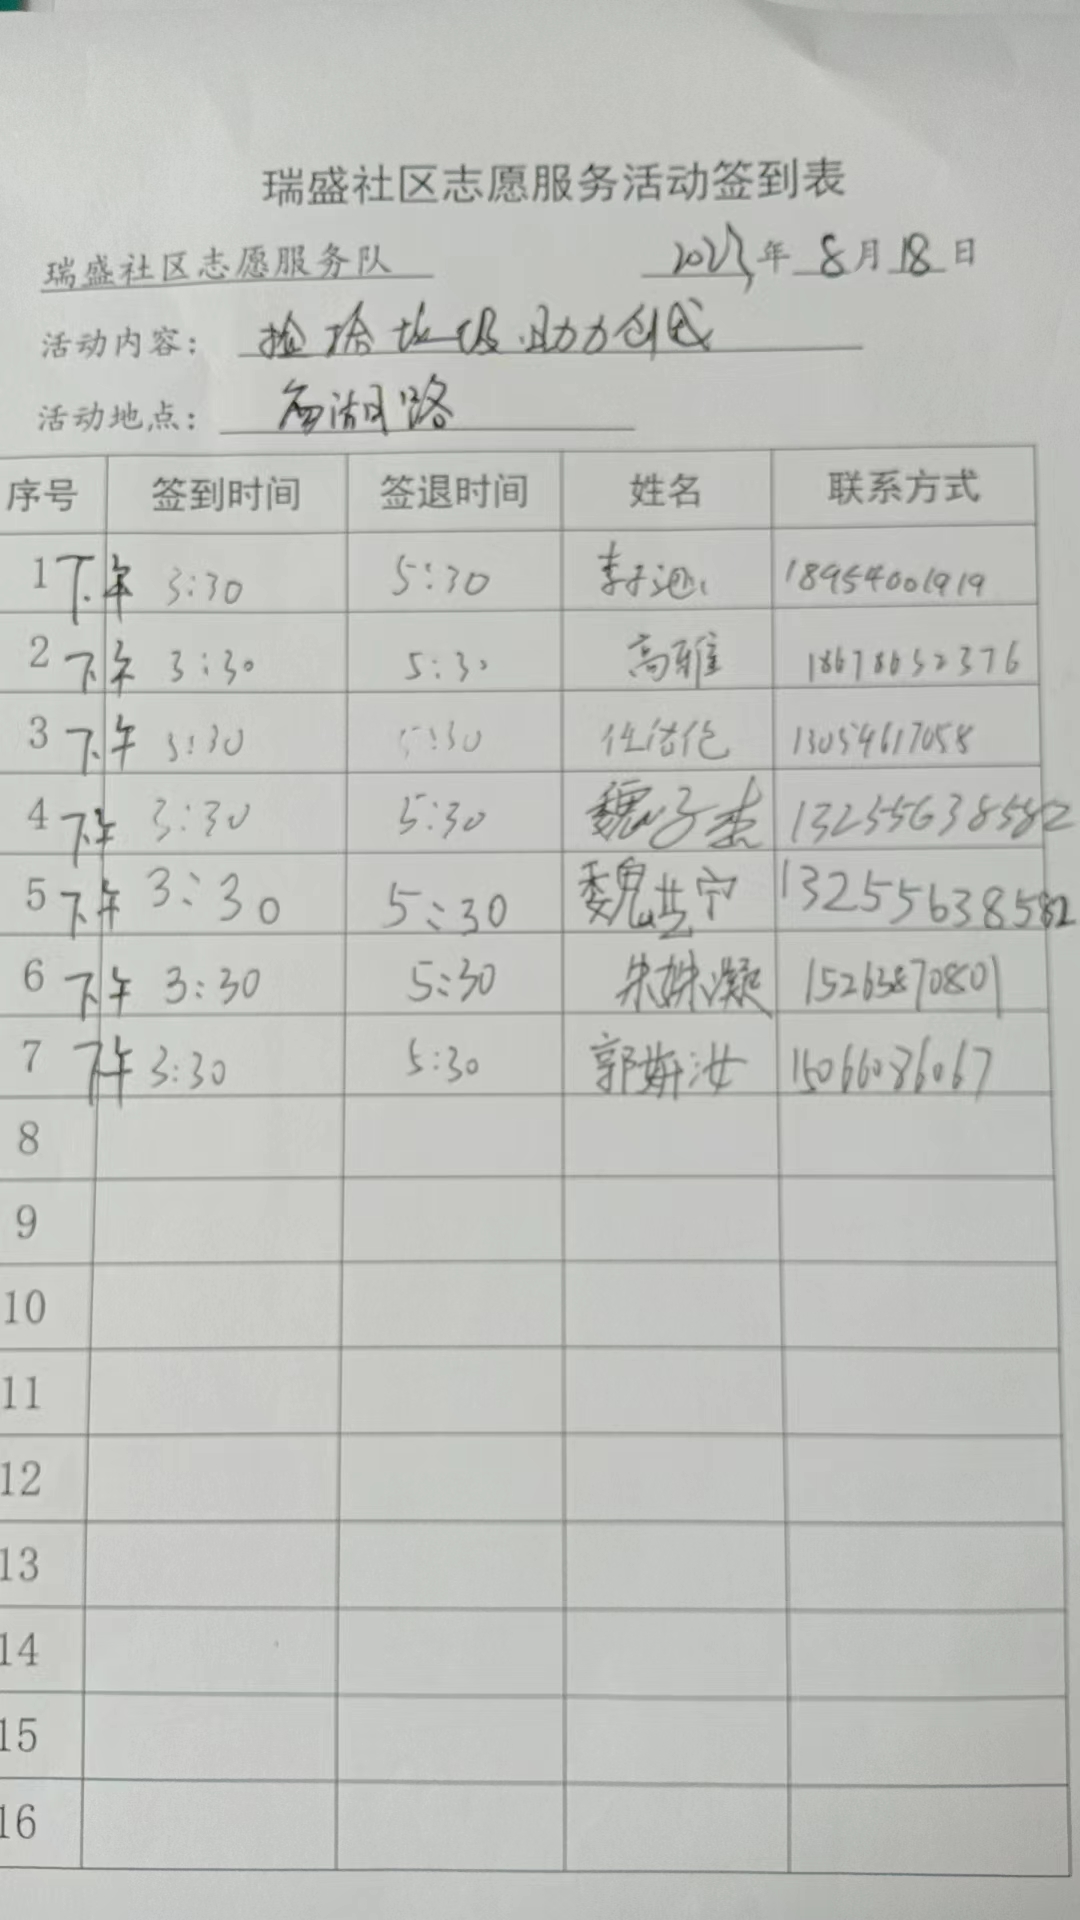 瑞盛社区志愿服务活动签到表
瑞盛社区志愿服务队 2023年8月18日
活动内容：捡拾垃圾助力创城
活动地点：湖路
序号 签到时间 签退时间 姓名 联系方式
1 下午 3:30 5:30 李 18954001919
2 下午 3:30 5:30 高雅 18678652376
3 下午 3:30 5:30 任洁伦 13054617058
4 下午 3:30 5:30 魏子杰 13255638582
5 下午 3:30 5:30 魏 13255638582
6 下午 3:30 5:30 朱姝凝 15263870801
7 下午 3:30 5:30 郭妍汝 15066086067
8
9
10
11
12
13
14
15
16